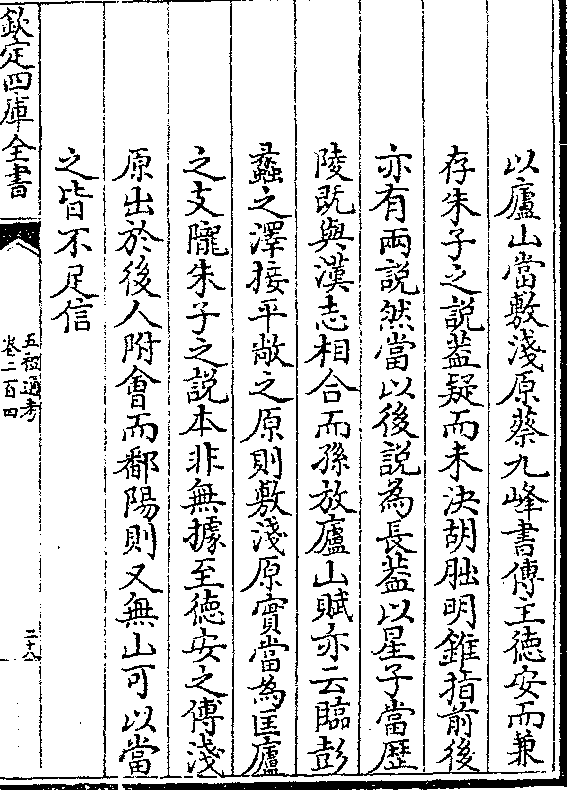 以廬山當敷淺原蔡九峰書傳主徳安而兼
存朱子之説葢疑而未決胡朏明錐指前後
亦有兩説然當以後説為長葢以星子當歴
陵既與漢志相合而孫放廬山賦亦云臨彭
蠡之澤接平敞之原則敷淺原實當為匡廬
之支隴朱子之説本非無據至徳安之傅淺
原出於後人附會而鄱陽則又無山可以當
之皆不足信
欽定四庫全書
五禮通考
卷二百四
二十八